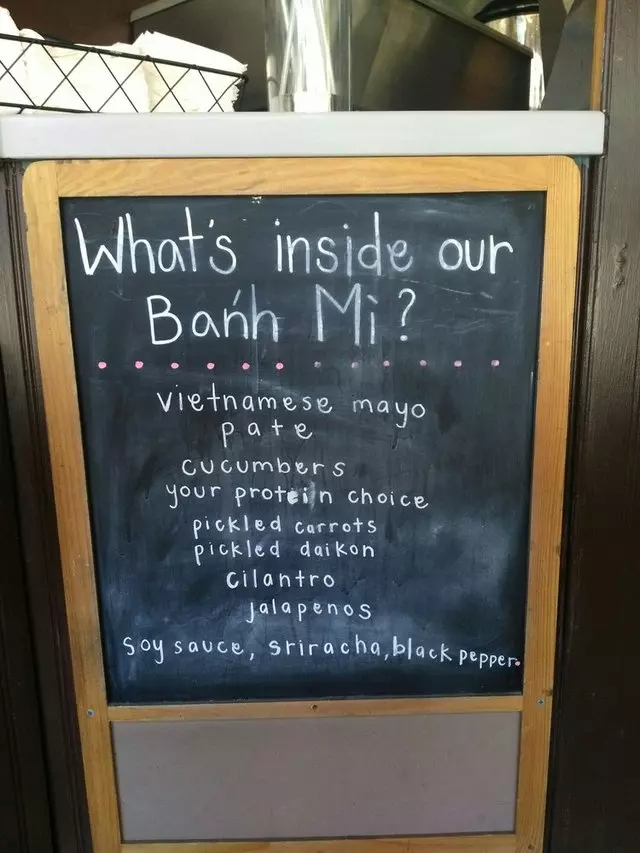 What's inside our
Bańh Mi?
vietnamese mayo
pate
cucumbers
your protein choice
pickled carrots
pickled daikon
cilantro
jalapenos
soy sauce, sriracha, black pepper.